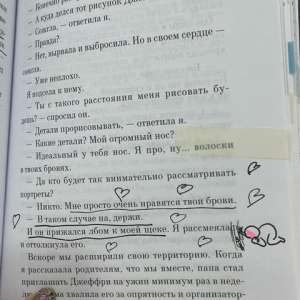 — Конечно
— А куда делся тот рисунок
— Сожгла, — ответила я.
— Правда?
— Нет, вырвала и выбросила. Но в своем сердце —
сожгла.
— Уже неплохо.
Я подсела к нему.
— Ты с такого расстояния меня рисовать бу-
дешь? — спросил он.
— Детали прорисовывать, — ответила я.
— Какие детали? Мой огромный нос?
— Идеальный у тебя нос. Я про, ну... волоски
в твоих бровях.
— Да кто будет так внимательно рассматривать
портреты?
— Никто. Мне просто очень нравятся твои брови.
— В таком случае на, держи.
И он прижался лбом к моей щеке. Я рассмеялась
и оттолкнула его.
Вскоре мы расширили свою территорию. Когда
я рассказала родителям, что мы вместе, папа стал
приглашать Джеффри на ужин минимум раз в неде-
хвалила его за опрятность и организатор-